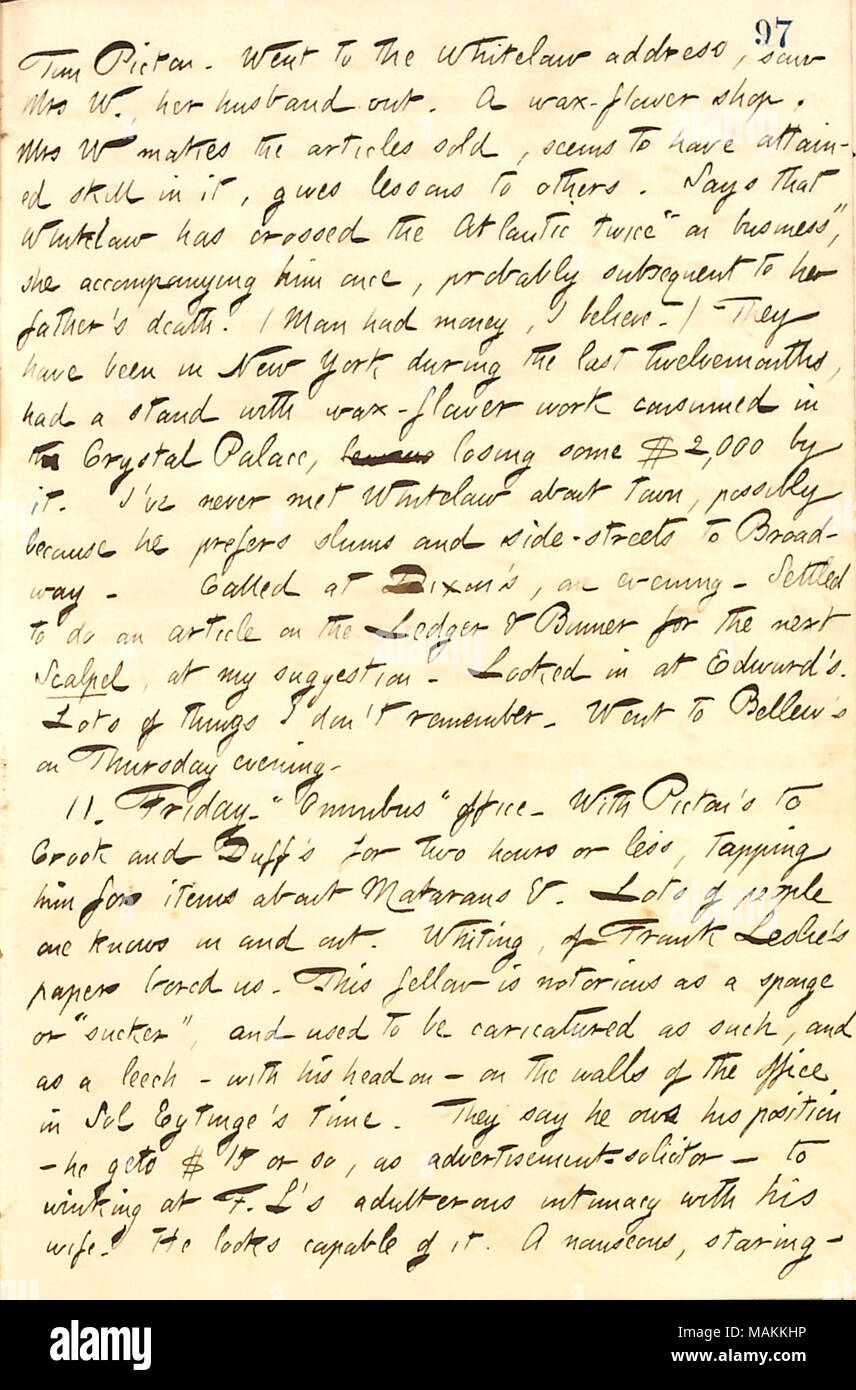 97
Tom Picton. Went to the Whitelaw address, saw
Mrs W., her husband out. A wax-flower shop.
Mrs W makes the articles sold, seems to have attain-
ed skill in it, gives lessons to others. Says that
Whitelaw has crossed the Atlantic twice "on business",
she accompanying him once, probably subsequent to her
father's death. (Man had money, I believe.) They
have been in New York during the last twelvemonths,
had a stand with wax-flower work consumed in
the Crystal Palace, losing some $2,000 by
it. I've never met Whitelaw about town, possibly
because he prefers slums and side-streets to Broad-
way. Called at Dixon's, an evening. Settled
to do an article on the Ledger & Bonner for the next
Scalpel, at my suggestion. Looked in at Edward's.
Lots of things I don't remember. Went to Bellew's
on Thursday evening.
11. Friday. "Omnibus" office. With Picton's to
Crook and Duff's for two hours or less, tapping
him for items about Matarans &. Lots of people
one knows in and out. Whiting, of Frank Leslie's
papers bored us. This fellow is notorious as a sponge
or "sucker", and used to be caricatured as such, and
as a leech - with his head on - on the walls of the office
in Sol Eytinge's time. They say he owe his position
- he gets $15 or so, as advertisement-solicitor - to
winking at F. L's adulterous intimacy with his
wife. He looks capable of it. A nauseous, staring-
alamy
Image ID: MAKKHP
www.alamy.com